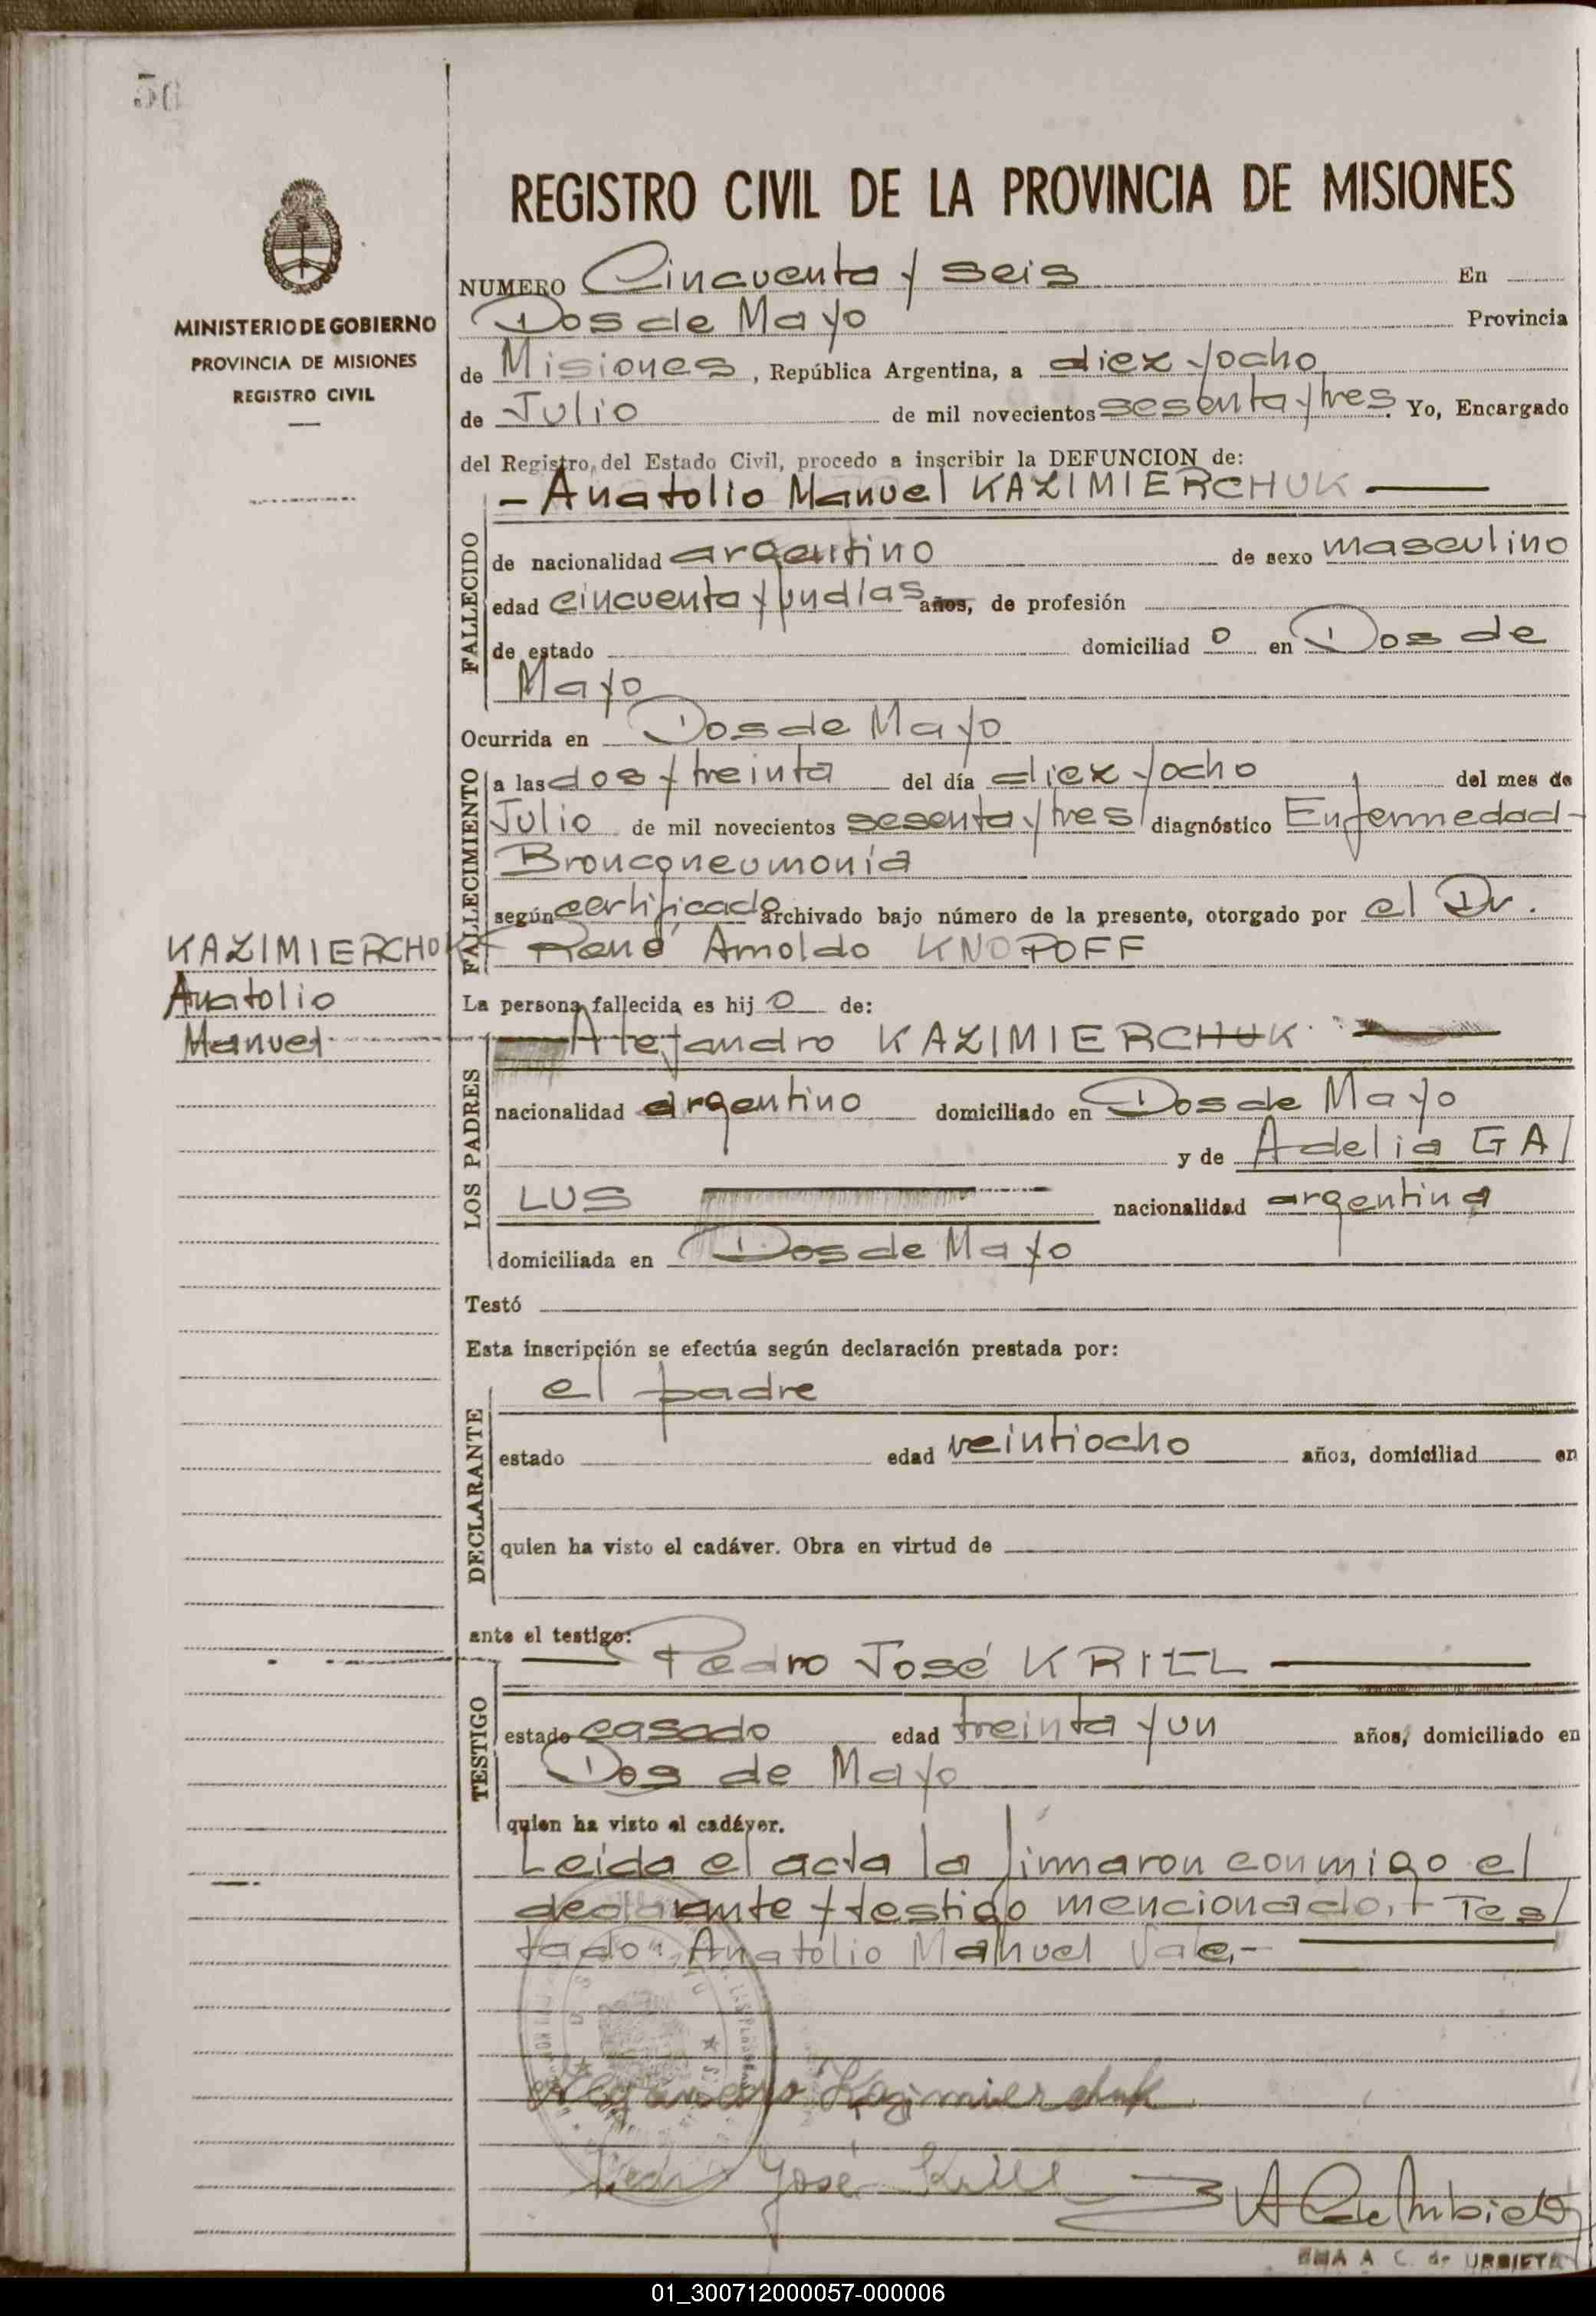 REGISTRO CIVIL DE LA PROVINCIA DE MISIONES
MINISTERIO DE GOBIERNO
PROVINCIA DE MISIONES
REGISTRO CIVIL
NUMERO Cincuenta y seis En
Dos de Mayo Provincia
de Misiones, República Argentina, a diez y ocho
de Julio de mil novecientos sesenta y tres. Yo, Encargado
del Registro del Estado Civil, procedo a inscribir la DEFUNCION de:
FALLECIDO
- Anatolio Manuel KAZIMIERCHUK
de nacionalidad argentino de sexo masculino
edad cincuenta y un días años, de profesión
de estado domiciliad o en Dos de
Mayo
Ocurrida en Dos de Mayo
FALLECIMIENTO
a las dos y treinta del día diez y ocho del mes de
Julio de mil novecientos sesenta y tres diagnóstico Enfermedad-
Bronconeumonía
según certificado archivado bajo número de la presente, otorgado por el Dr.
René Arnoldo KNOPOFF
KAZIMIERCHUK
Anatolio
Manuel
La persona fallecida es hij o de:
LOS PADRES
Alejandro KAZIMIERCHUK
nacionalidad argentino domiciliado en Dos de Mayo
y de Adelia GA/
LUS nacionalidad argentina
domiciliada en Dos de Mayo
Testó
Esta inscripción se efectúa según declaración prestada por:
DECLARANTE
el padre
estado edad veintiocho años, domiciliad en
quien ha visto el cadáver. Obra en virtud de
ante el testigo:
TESTIGO
Pedro José KRILL
estado casado edad treinta y un años, domiciliado en
Dos de Mayo
quien ha visto el cadáver.
Leída el acta la firmaron conmigo el
declarante y testigo mencionado.+ Tes/
tado: Anatolio Manuel Vale.-
Alejandro Kazimierchuk
Pedro José Krill
A C de Urbieta
A C. de URBIETA
01_300712000057-000006